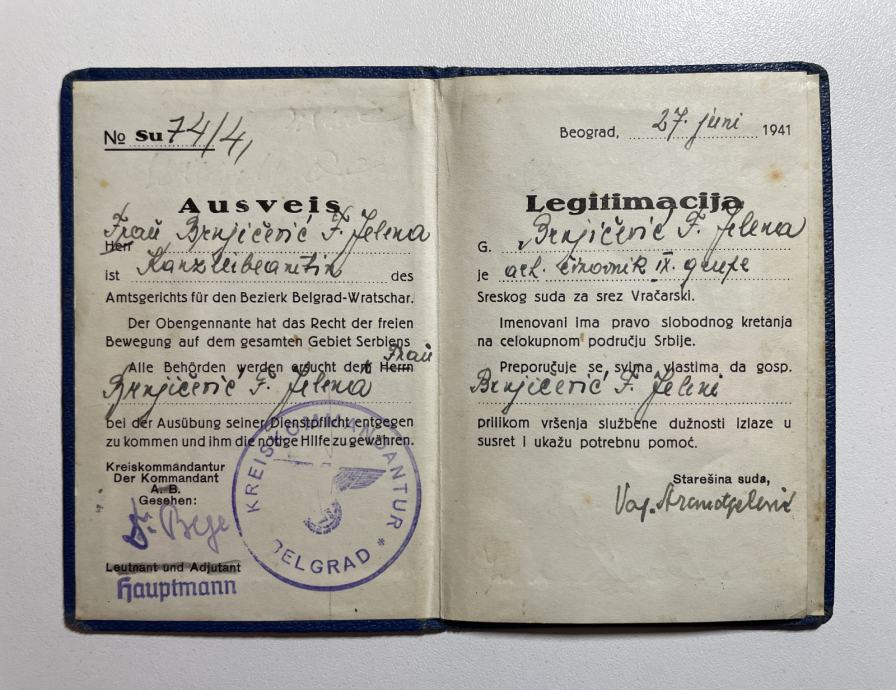 No Su 74/41
Ausveis
Frau Brnjičević F. Jelena
Herr
ist Kanzleibeamtin des
Amtsgerichts für den Bezierk Belgrad-Wratschar.
Der Obengennante hat das Recht der freien
Bewegung auf dem gesamten Gebiet Serbiens
Frau
Alle Behörden werden ersucht den Herrn
Brnjičević F. Jelena
bei der Ausübung seiner Dienstpflicht entgegen
zu kommen und ihm die nötige Hilfe zu gewähren.
Kreiskommandantur
Der Kommandant
A. B.
Gesehen:
Dr.
Leutnant und Adjutant
Hauptmann
KREISKOMMANDANTUR
BELGRAD *
Beograd, 27. juni 1941
Legitimacija
G. Brnjičević F. Jelena
je činovnik IX. grupe
Sreskog suda za srez Vračarski.
Imenovani ima pravo slobodnog kretanja
na celokupnom području Srbije.
Preporučuje se svima vlastima da gosp.
Brnjičević F. Jeleni
prilikom vršenja službene dužnosti izlaze u
susret i ukažu potrebnu pomoć.
Starešina suda,